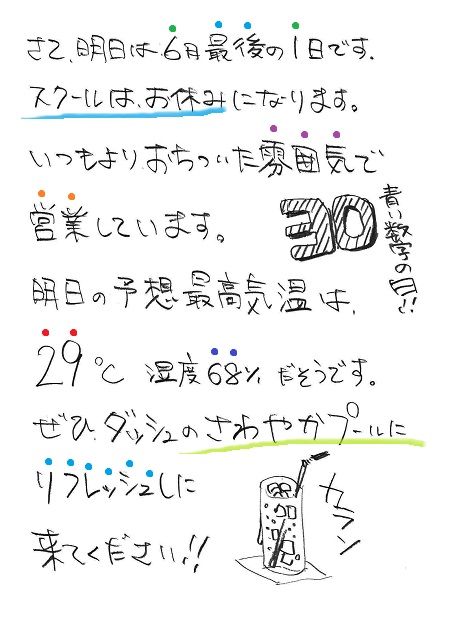 さて、明日は6月最後の1日です。
スクールは、お休みになります。
いつもより、おちついた雰囲気で
営業しています。
30
青い数字の日!!
明日の予想最高気温は、
29℃ 湿度68% だそうです。
ぜひ、ダッシュのさわやかプールに
リフレッシュしに
来てください!!
カラン